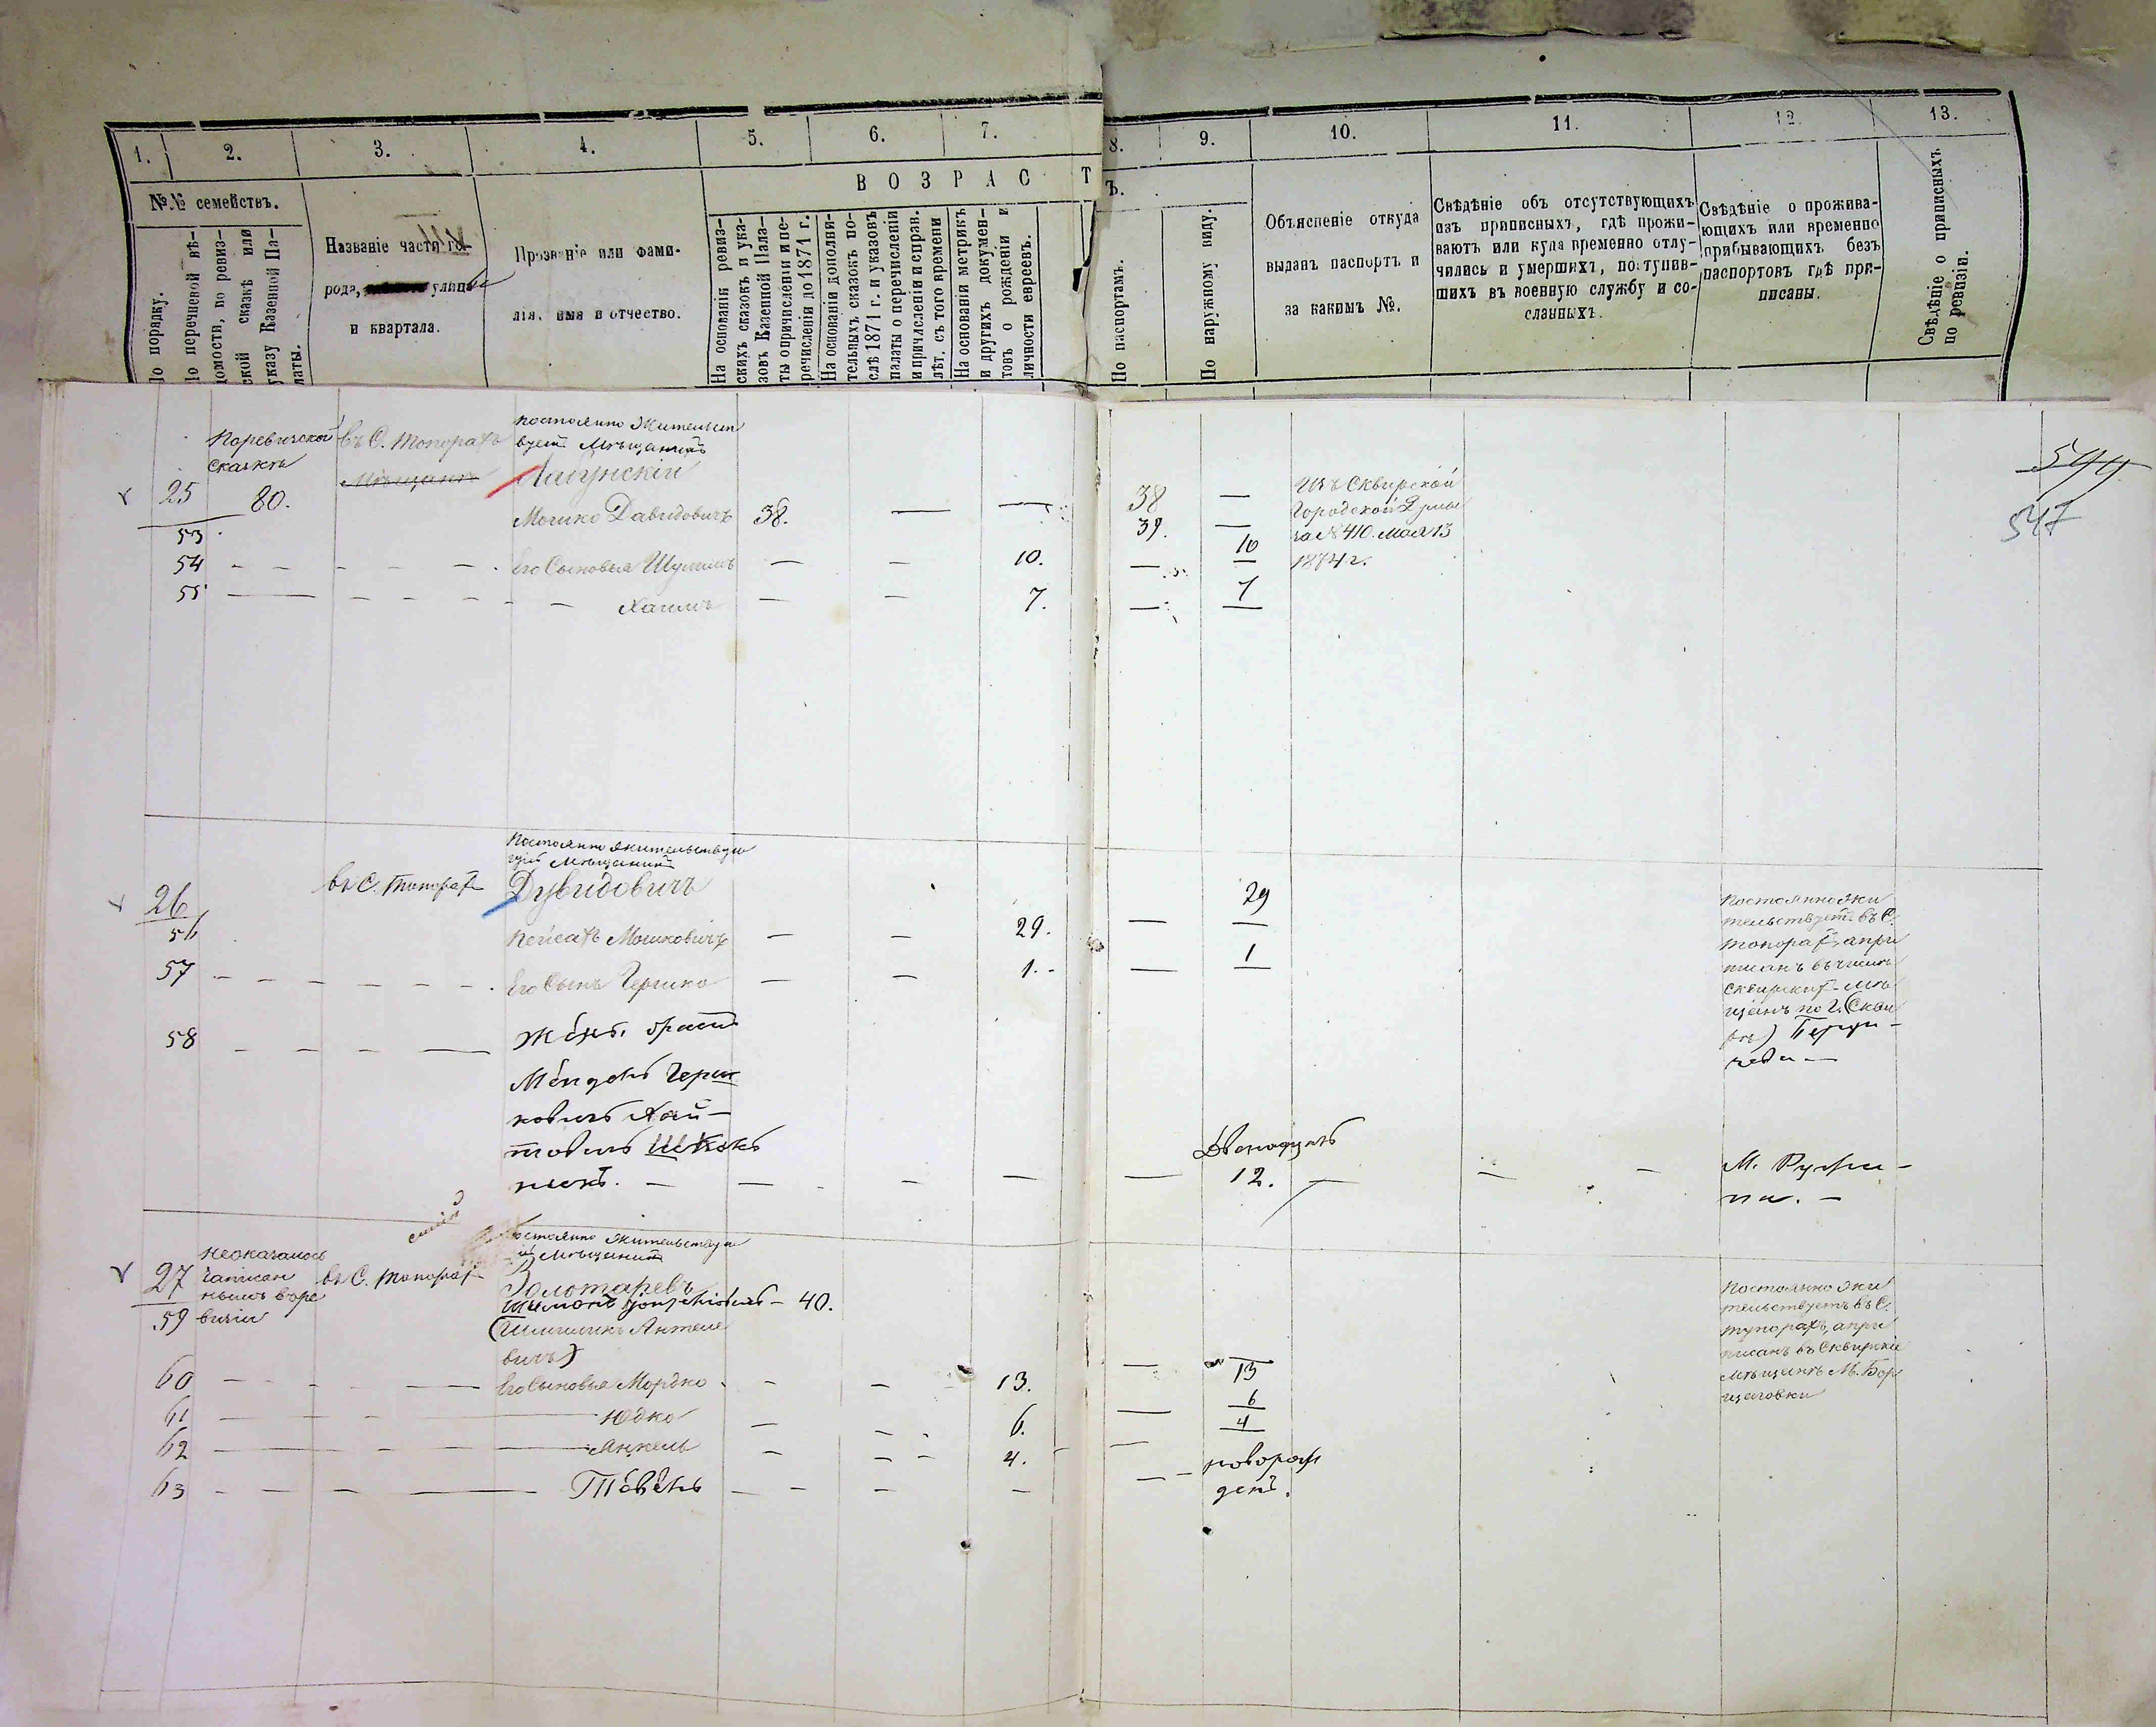 1. 2. 3. 4. 5. 6. 7. 8. 9. 10. 11. 12. 13.
№№ семействъ.
По порядку.
По перечневой вѣ-
домости, по ревиз-
ской сказкѣ или
указу Казенной Па-
латы.
Названіе части го-
рода, улицы
и квартала.
Прозваніе или фами-
лія, имя и отчество.
ВОЗРАСТЪ.
На основаніи ревиз-
скихъ сказокъ и ука-
зовъ Казенной Пала-
ты о причисленіи и пе-
речисленіи до 1871 г.
На основаніи дополни-
тельныхъ сказокъ по-
слѣ 1871 г. и указовъ
палаты о перечисленіи
и причисленіи и справ.
лѣт. съ того времени
На основаніи метрикъ
и другихъ докумен-
товъ о рожденіи и
личности евреевъ.
По паспортамъ.
По наружному виду.
Объясненіе откуда
выданъ паспортъ и
за какимъ №.
Свѣдѣніе объ отсутствующихъ
изъ приписныхъ, гдѣ прожи-
ваютъ или куда временно отлу-
чились и умершихъ, поступив-
шихъ въ военную службу и со-
сланныхъ.
Свѣдѣніе о прожива-
ющихъ или временно
прибывающихъ безъ
паспортовъ гдѣ при-
писаны.
Свѣдѣніе о приписныхъ
по ревизіи.
544
547
сказкѣ
25 80. въ С. Топорахъ
Мѣщане
постоянно жительст
вуетъ Мѣщанинъ
53 Мошко Давидовичъ 38. — — 38 —
39. —
Изъ Сквирской
Городской Думы
за №410. мая 13
1874 г.
54 - - - - - Его Сыновья Шулимъ — — 10. — 10
55 — - - - - - Хаимъ — — 7. — 7
26 въ С. Топорах
Постоянно жительствую
щій Мѣщанинъ
Дувидовичъ
56 Пейсахъ Мошковичъ — — 29. — 29
57 - - - - - - Его Сынъ Гершко — — 1. - — 1
Постоянно жи
тельствуетъ въ С.
Топорах, апри
писанъ въ число
Сквирских Мѣ
щанъ по г. (Скви
рѣ) Берди-
чева —
58 - - - — Жены братъ
Мендель Герш
ковичъ
— — — — Двенадцать
12. — — — М. Ружи-
на. —
27 неоказалось
записан
нымъ поре
визіи
въ С. Топорах
Постоянно жительствую
щій Мѣщанинъ
Золотаревъ
59 40.
60 - - - — Его Сыновья Мордко - — 13. — 13
61 — - - — Юдко — - - 6. — 6
62 — - - — Янкель - - - 4. - — 4
63 - - - — — - - — - - - новорож
денъ.
Постоянно жи
тельствуетъ въ С.
Тупорахъ, апри
писанъ въ Сквирскіе
мѣщанѣ М. Бор
щаговки